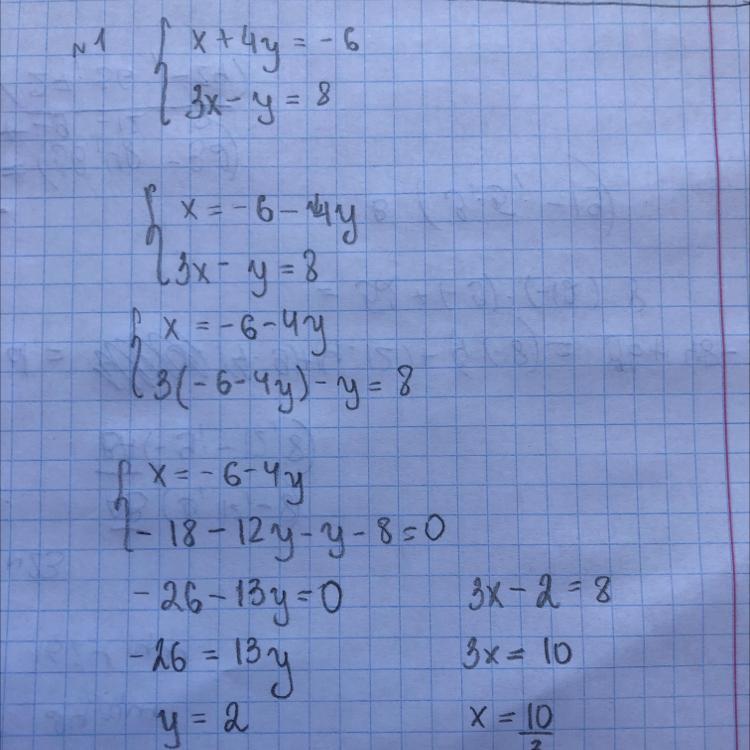 №1 x + 4y = - 6
3x - y = 8
x = - 6 - 4y
3x - y = 8
x = - 6 - 4y
3(- 6 - 4y) - y = 8
x = - 6 - 4y
- 18 - 12y - y - 8 = 0
- 26 - 13y = 0
- 26 = 13y
y = 2
3x - 2 = 8
3x = 10
x = 10/3